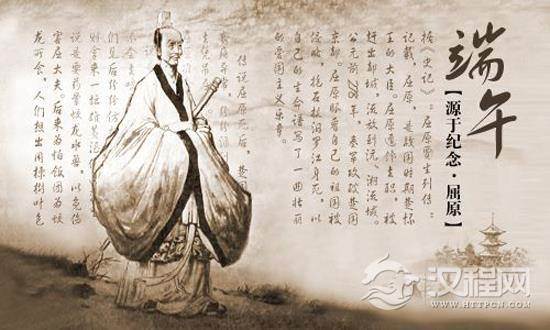 端午
【源于纪念·屈原】
据《史记》:屈原贾生列传:
记载,屈原,是战国时期楚怀
王的大臣。屈原遭馋去职,被
赶出都城,流放到沅、湘流域。
公元前278年,秦军攻破楚国
京都。屈原眼看自己的祖国被
侵略,抱石投汨罗江身死,以
自己的生命谱写了一曲壮丽
的爱国主义乐章。
传说屈原死后,楚国
们见后纷纷仿
则拿来一坛雄黄
说是要药晕蛟龙水兽,以免伤
害屈大夫。后来为怕饭团为蛟
龙所食,人们想出用楝树叶包
汉程网
HTTPCN.COM